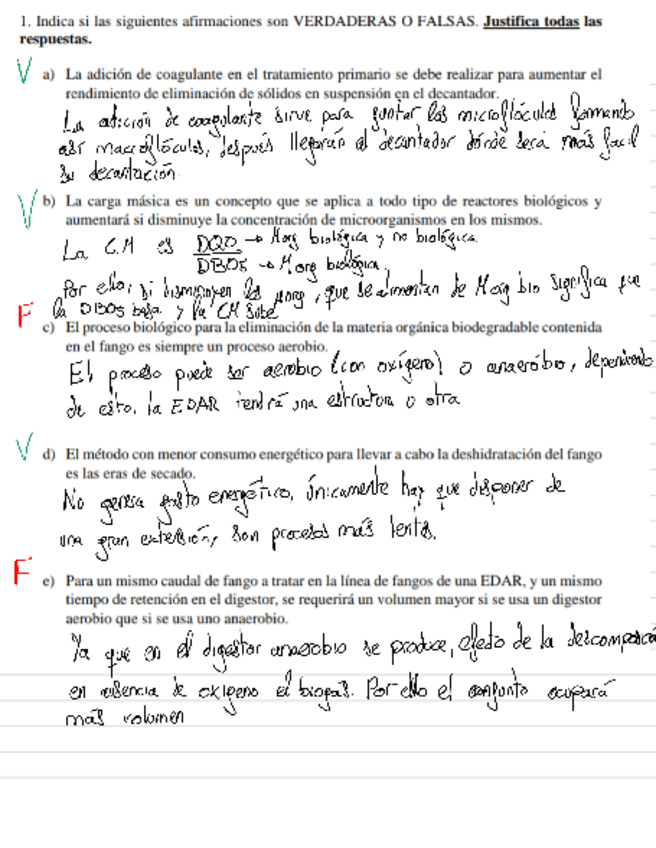 1. Indica si las siguientes afirmaciones son VERDADERAS O FALSAS. Justifica todas las
respuestas.
V a) La adición de coagulante en el tratamiento primario se debe realizar para aumentar el
rendimiento de eliminación de sólidos en suspensión en el decantador.
La adición de coagulante sirve para juntar los microflóculos formando
así macroflóculos, después llegarán al decantador dónde será más facil
su decantación.
V b) La carga másica es un concepto que se aplica a todo tipo de reactores biológicos y
aumentará si disminuye la concentración de microorganismos en los mismos.
La C.M es DQO → Morg biológica y no biológica
DBO5 → Morg biológica
Por ello, si disminuyen los morg, que se alimentan de Morg bio significa que
la DBO5 baja y la CM sube
F c) El proceso biológico para la eliminación de la materia orgánica biodegradable contenida
en el fango es siempre un proceso aerobio.
El proceso puede ser aerobio (con oxígeno) o anaerobio, dependiendo
de esto, la EDAR tendrá una estructura u otra
V d) El método con menor consumo energético para llevar a cabo la deshidratación del fango
es las eras de secado.
No genera gasto energético, únicamente hay que disponer de
una gran extensión, son procesos más lentos.
F e) Para un mismo caudal de fango a tratar en la línea de fangos de una EDAR, y un mismo
tiempo de retención en el digestor, se requerirá un volumen mayor si se usa un digestor
aerobio que si se usa uno anaerobio.
Ya que en el digestor anaerobio se produce, efecto de la
en ausencia de oxígeno el biogas. Por ello el conjunto ocupará
más volumen